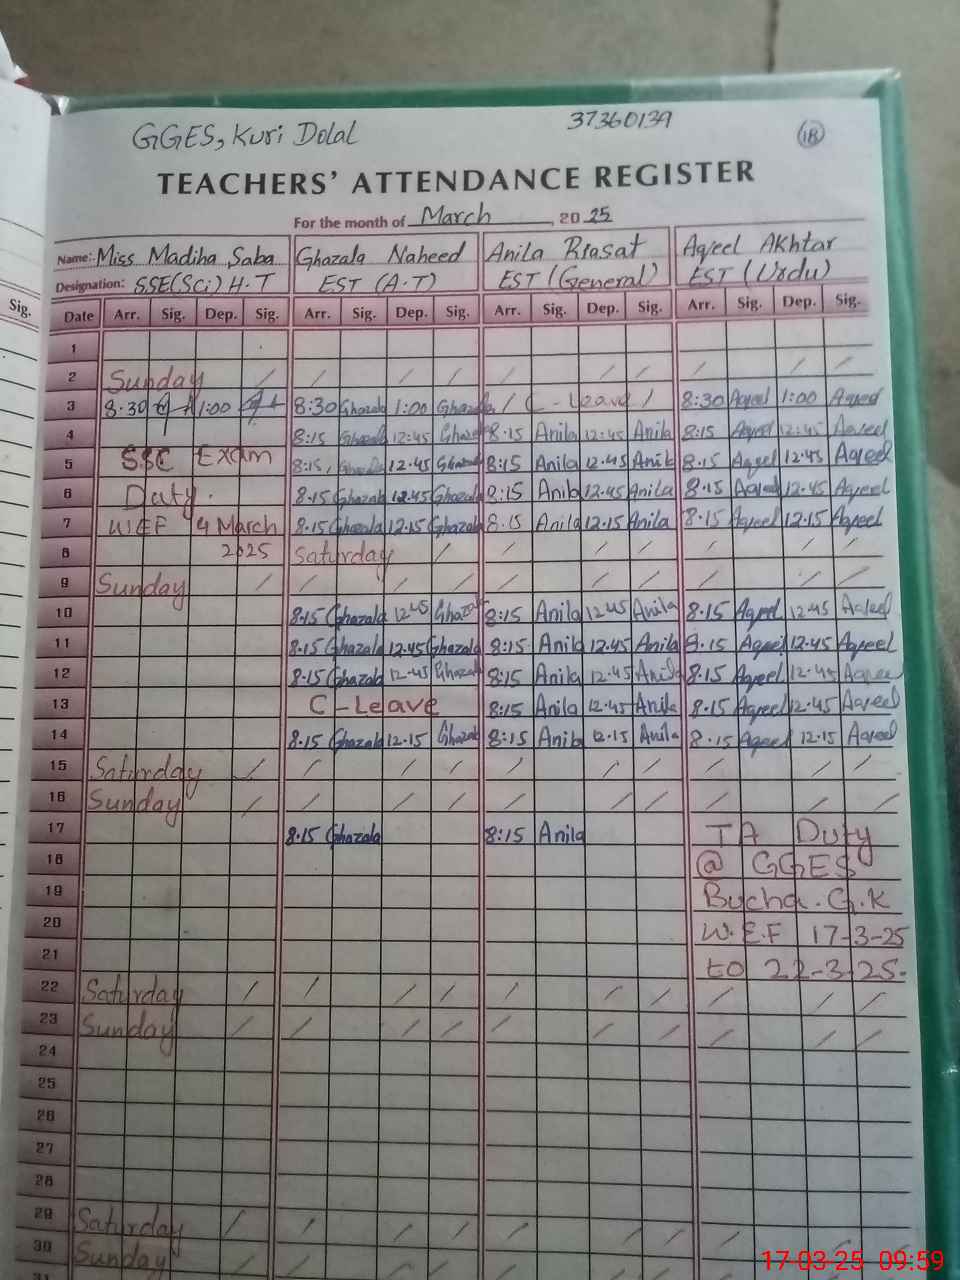 GGES, Kuri Dolal
37360139
18
TEACHERS' ATTENDANCE REGISTER
For the month of March, 2025
Name: Miss Madiha Saba Ghazala Naheed Anila Riasat Aqeel Akhtar
Designation: SSE(Sci) H.T EST (A.T) EST (General) EST (Urdu)
Sig.
Date Arr. Sig. Dep. Sig. Arr. Sig. Dep. Sig. Arr. Sig. Dep. Sig. Arr. Sig. Dep. Sig.
1
2 Sunday / / / / / / / / / /
3 8.30 1:00 8:30 Ghazala 1:00 Ghazala / C-Leave / 8:30 Aqeel 1:00 Aqeel
4 8:15 Ghazala 12:45 Ghazala 8.15 Anila 12:45 Anila 8:15 Aqeel 12:45 Aqeel
5 SSC Exam 8:15 Ghazala 12.45 Ghazala 8:15 Anila 12.45 Anila 8.15 Aqeel 12.45 Aqeel
6 Duty. 8.15 Ghazala 12.45 Ghazala 8:15 Anila 12.45 Anila 8.15 Aqeel 12.45 Aqeel
7 W.E.F 4 March 8.15 Ghazala 12.15 Ghazala 8:15 Anila 12.15 Anila 8.15 Aqeel 12.15 Aqeel
8 2025 Saturday / / / / / / / /
9 Sunday / / / / / / / / / / / /
10 8.15 Ghazala 12.45 Ghazala 8:15 Anila 12.45 Anila 8.15 Aqeel 12.45 Aqeel
11 8.15 Ghazala 12.45 Ghazala 8:15 Anila 12.45 Anila 8.15 Aqeel 12.45 Aqeel
12 8.15 Ghazala 12.45 Ghazala 8:15 Anila 12.45 Anila 8.15 Aqeel 12.45 Aqeel
13 C-Leave 8:15 Anila 12.45 Anila 8.15 Aqeel 12.45 Aqeel
14 8.15 Ghazala 12.15 Ghazala 8:15 Anila 12.15 Anila 8.15 Aqeel 12.15 Aqeel
15 Saturday / / / / / / / / / /
16 Sunday / / / / / / / / / /
17 8.15 Ghazala 8:15 Anila TA Duty
18 @ GGES
19 Bucha. G.K
20 W.E.F 17-3-25
21 to 22-3-25.
22 Saturday / / / / / / / / / /
23 Sunday / / / / / / / / / /
24
25
26
27
28
29 Saturday / / / / / / / / / /
30 Sunday / / / / / / / / / /
31
17-03-25 09:59